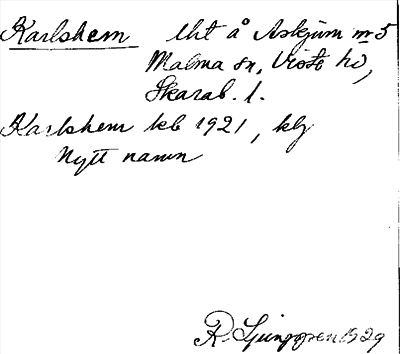 Karlshem lht å Askjum nr 5
Malma sn, Viste hd,
Skarab. l.
Karlshem kb 1921, klj
Nytt namn
R. Ljunggren 1929